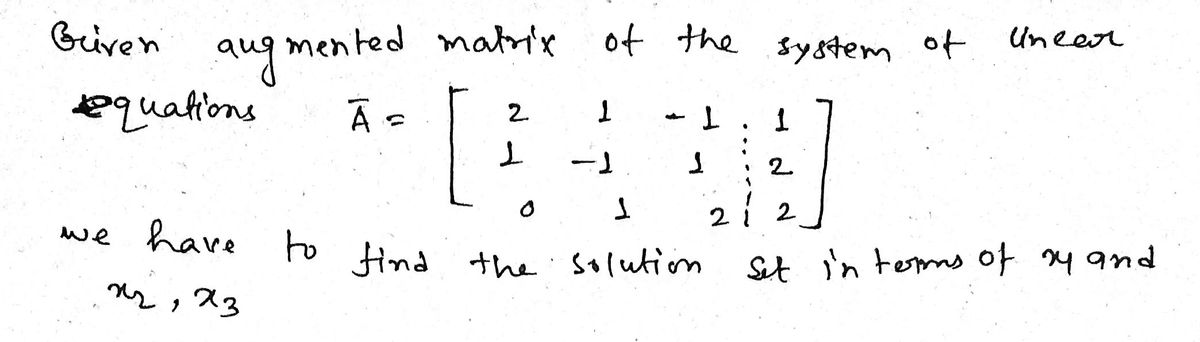 Given augmented matrix of the system of linear
equations Ā = [ 2 1 -1 : 1
1 -1 1 : 2
0 1 2 : 2 ]
we have to find the solution set in terms of x1 and
x2, x3